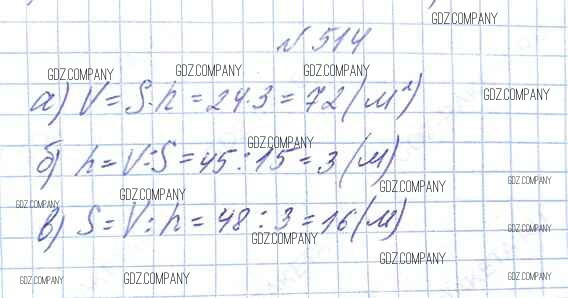 GDZ.COMPANY
№ 514
GDZ.COMPANY GDZ.COMPANY GDZ.COMPANY
а) V = S · h = 24 · 3 = 72 (м²)
GDZ.COMPANY
GDZ.COMPANY
б) h = V : S = 45 : 15 = 3 (м)
GDZ.COMPANY GDZ.COMPANY
GDZ.COMPANY GDZ.COMPANY
в) S = V : h = 48 : 3 = 16 (м)
GDZ.COMPANY GDZ.COMPANY
GDZ.COMPANY GDZ.COMPANY GDZ.COMPANY GDZ.COMPANY